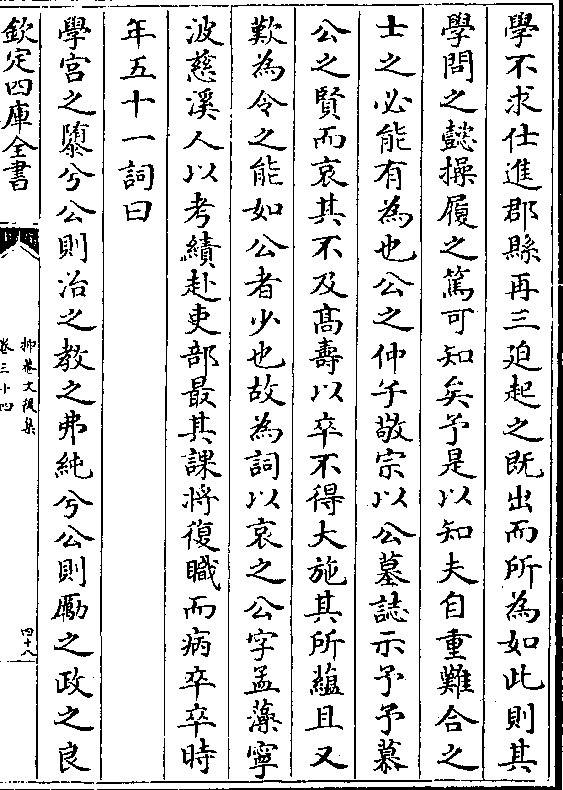 學不求仕進郡縣再三迫起之既出而所為如此則其
學問之懿操履之篤可知矣予是以知夫自重難合之
士之必能有為也公之仲子敬宗以公墓誌示予予慕
公之賢而哀其不及髙壽以卒不得大施其所蘊且又
歎為令之能如公者少也故為詞以哀之公字孟藻寧
波慈溪人以考績赴吏部最其課將復職而病卒卒時
年五十一詞曰
學宫之隳兮公則治之教之弗純兮公則勵之政之良
欽定四庫全書
抑菴文後集
卷三十四
四十八